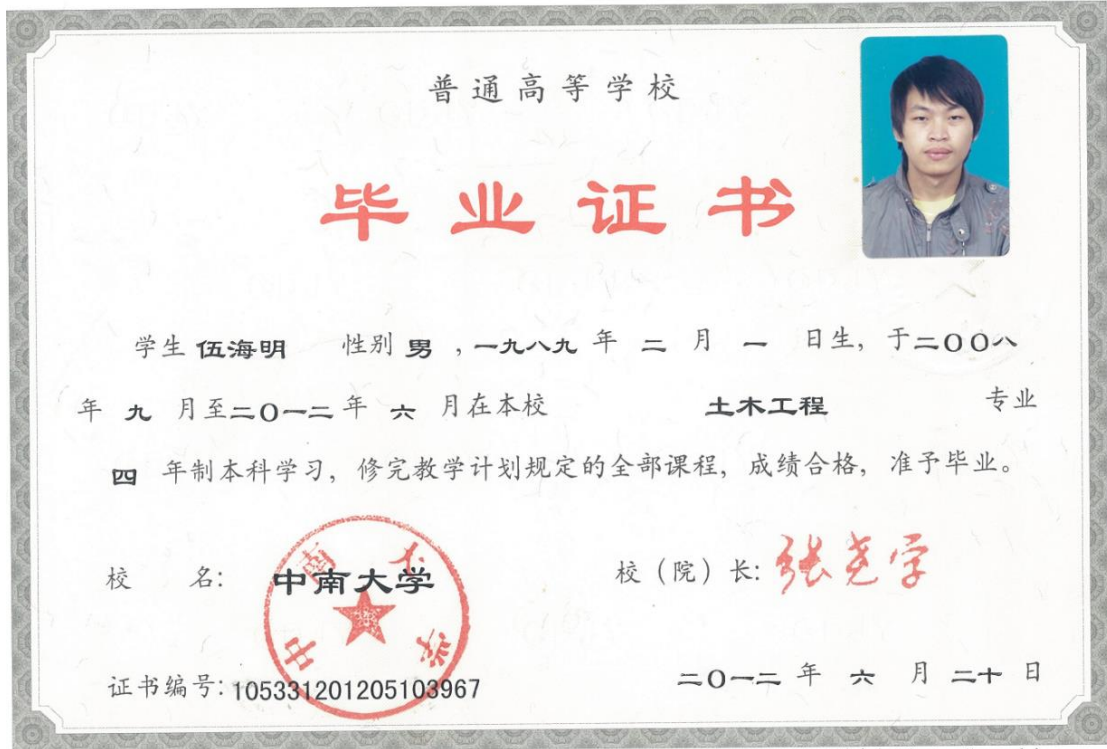 普通高等学校
毕业证书
学生 伍海明 性别 男 ,一九八九 年 二 月 一 日生, 于二〇〇八
年 九 月至二〇一二 年 六 月在本校 土木工程 专业
四 年制本科学习, 修完教学计划规定的全部课程, 成绩合格, 准予毕业。
校 名: 中南大学 校(院)长: 张尧学
中南大学
证书编号: 105331201205103967 二〇一二 年 六 月 二十 日